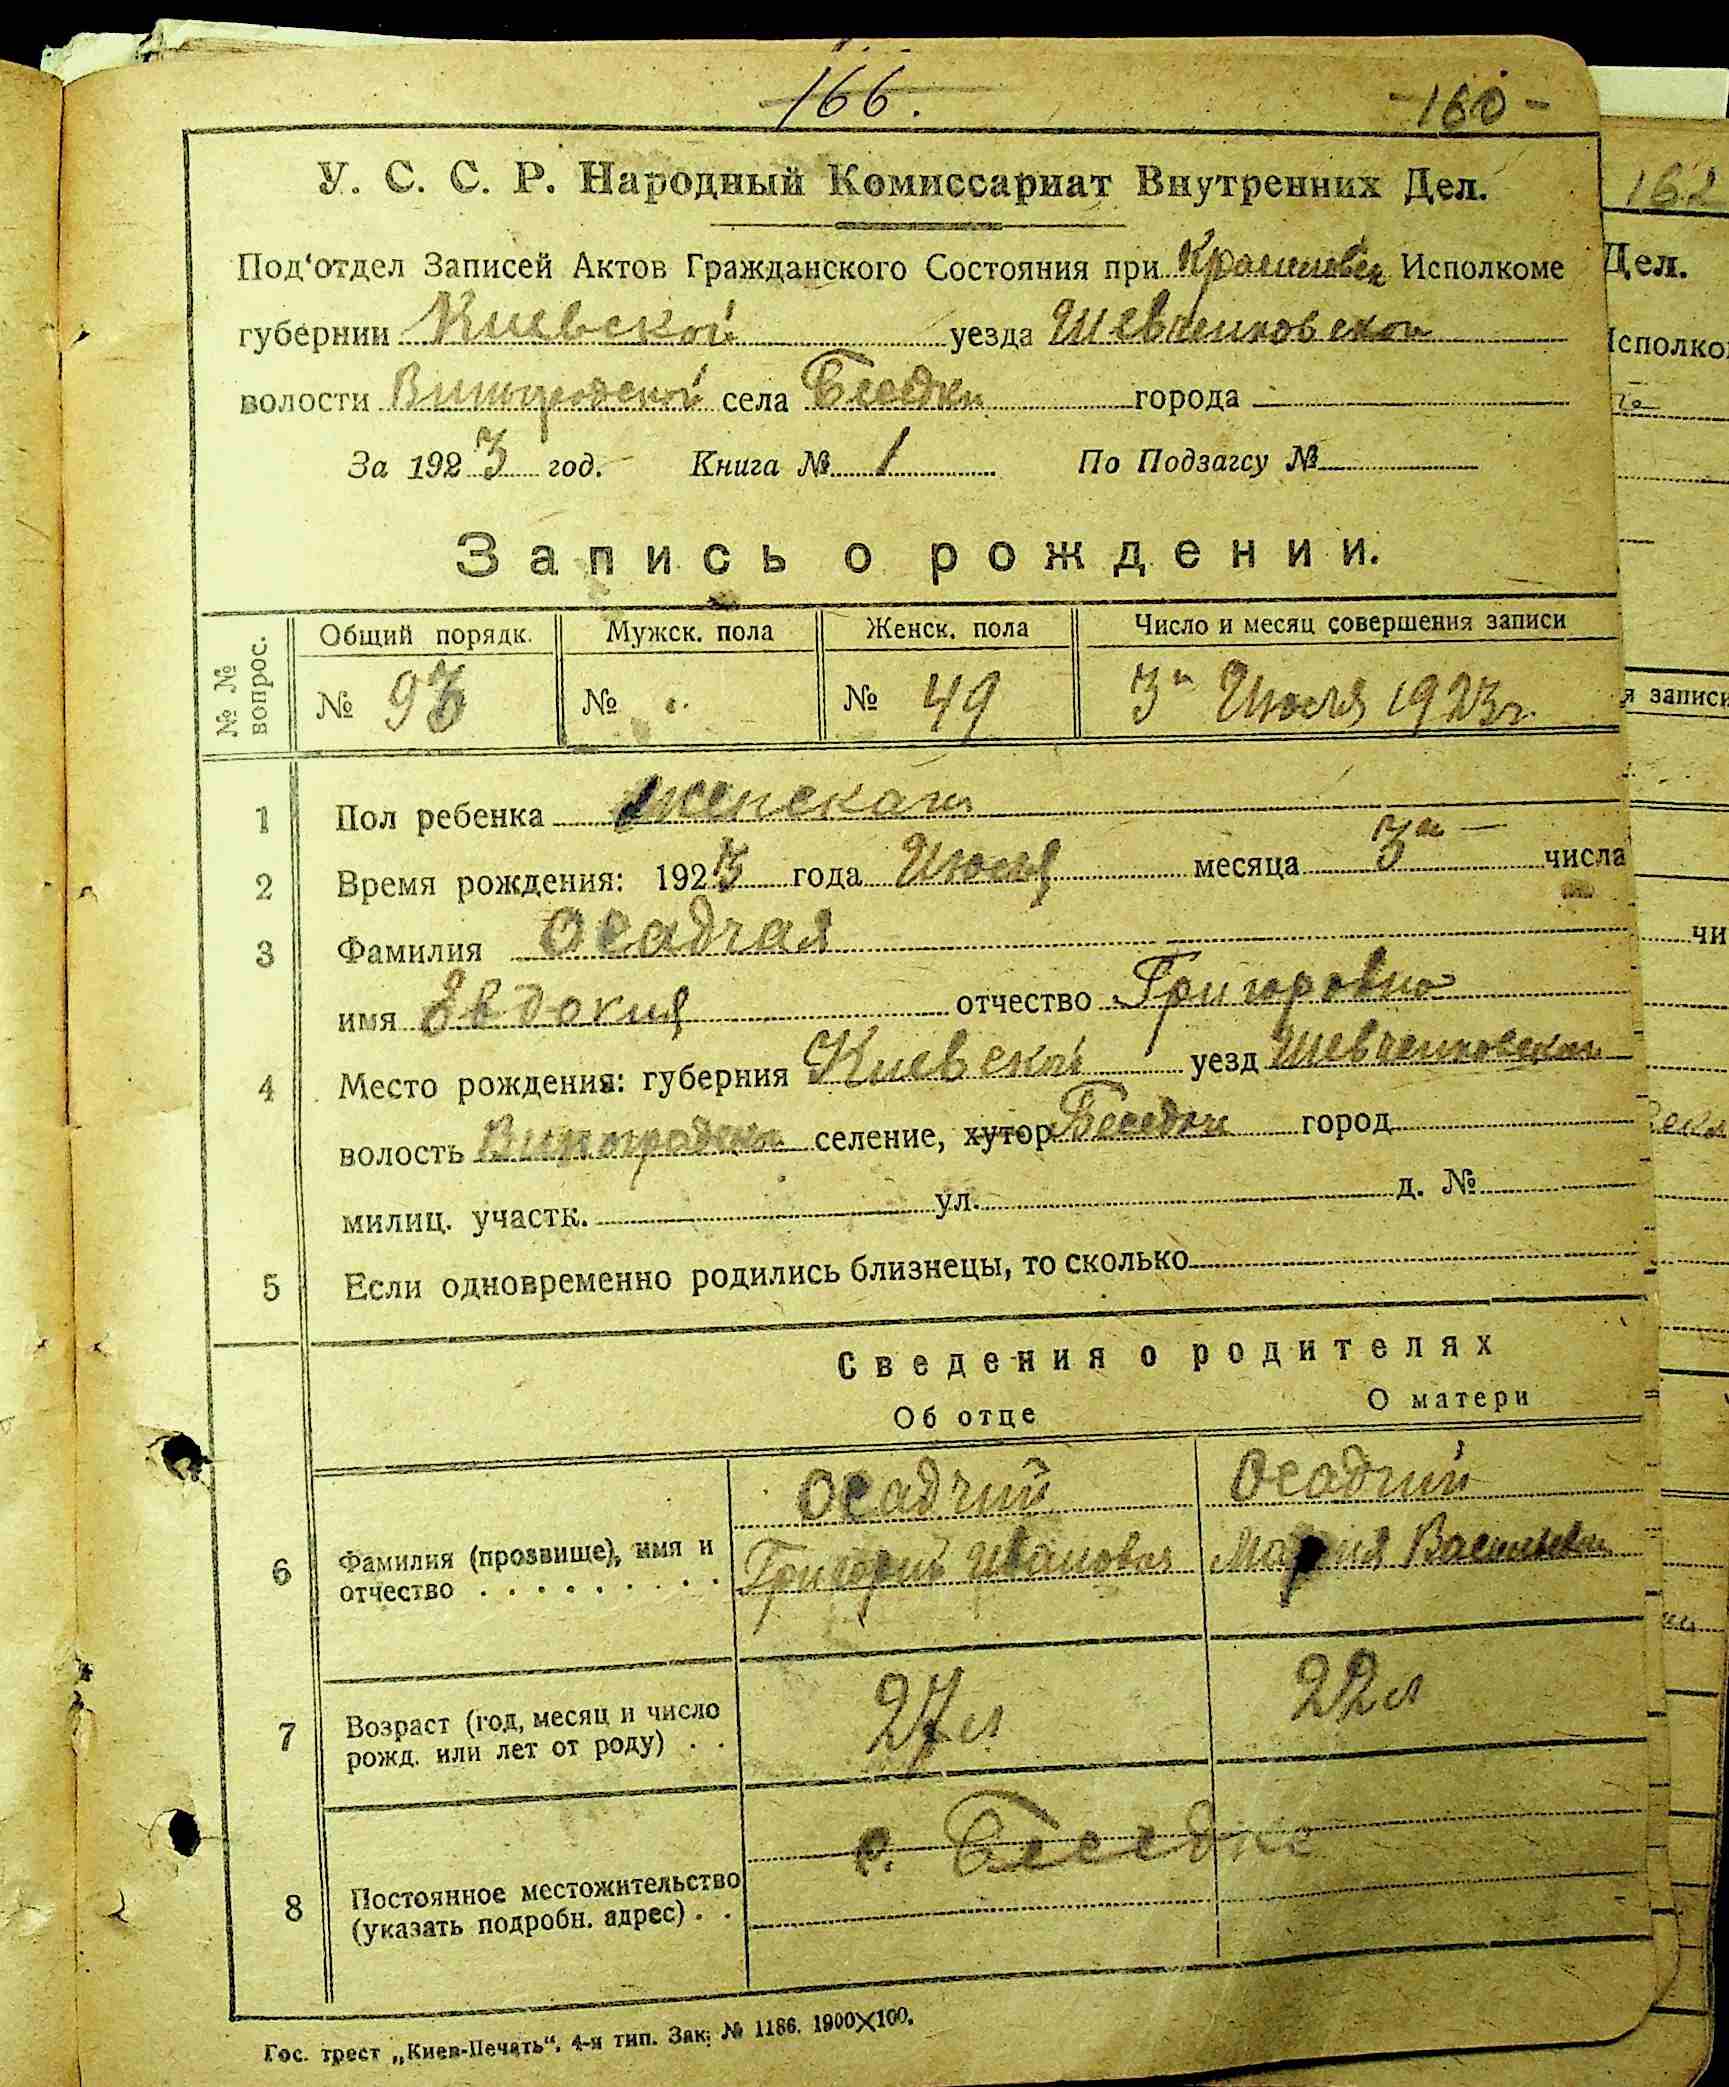 166.
-160-
У. С. С. Р. Народный Комиссариат Внутренних Дел.
162
Под'отдел Записей Актов Гражданского Состояния при Исполкоме
Дел.
губернии Киевской уезда Шевченковской
Исполко
волости Виногродской села Беседки города
За 1923 год. Книга № 1 По Подзагсу №
Запись о рождении.
№№ вопрос.
Общий порядк. Мужск. пола Женск. пола Число и месяц совершения записи
№ 93 № № 49 3го Июля 1923г.
я записи
1 Пол ребенка женская
2 Время рождения: 1923 года Июля месяца 3го числа
3 Фамилия Осадчая
чи
имя Евдокия отчество Григоровна
4 Место рождения: губерния Киевской уезд Шевченковской
волость Виногродской селение, хутор Беседки город
милиц. участк. ул. д. №
5 Если одновременно родились близнецы, то сколько
Сведения о родителях
Об отце О матери
Осадчий Осадчий
6 Фамилия (прозвище), имя и Григорий Иванович Мария Васильевна
отчество . . . . . . . . .
7 Возраст (год, месяц и число 27 л 22 л
рожд. или лет от роду) . .
с. Беседке
8 Постоянное местожительство
(указать подробн. адрес) . .
Гос. трест „Киев-Печать“. 4-я тип. Зак. № 1186. 1900×100.